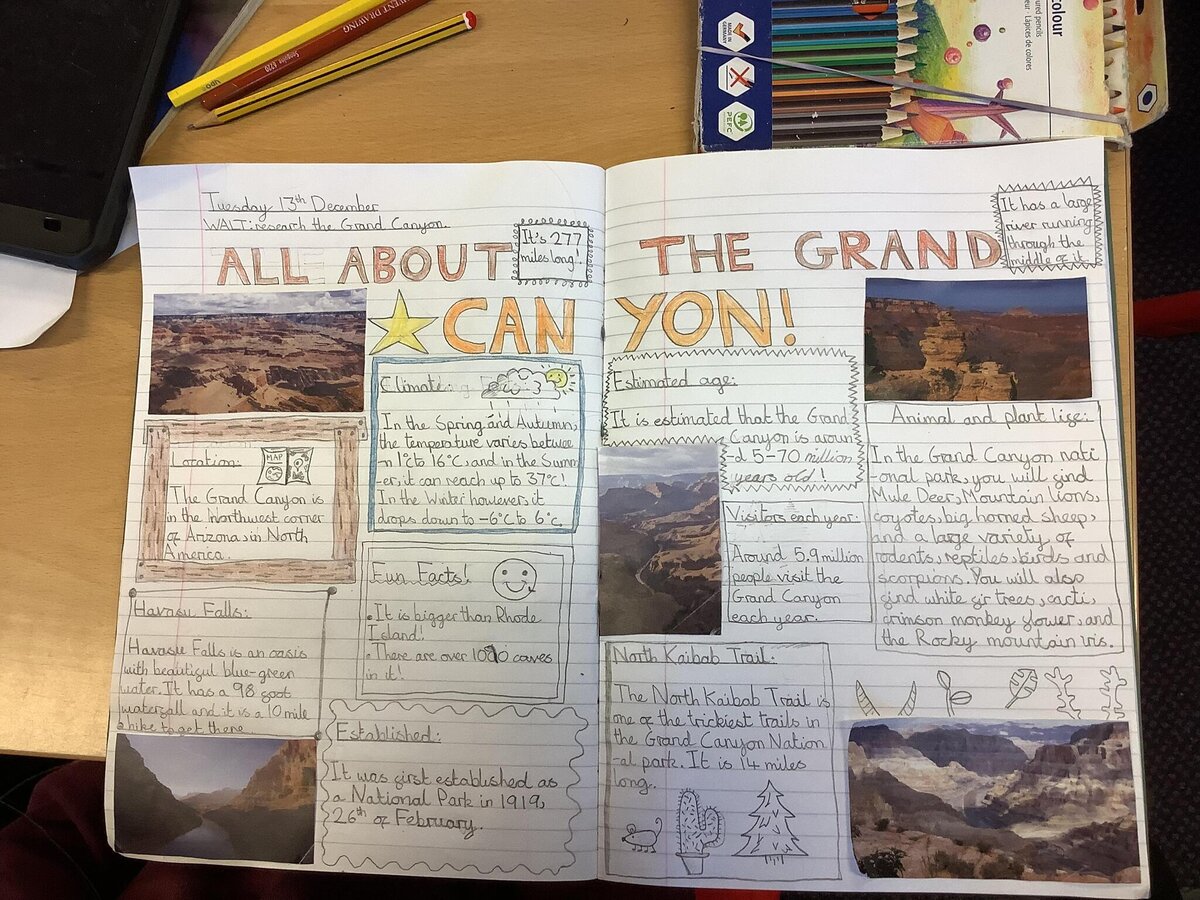 Tuesday 13th December
WALT: research the Grand Canyon.
ALL ABOUT
It's 277
miles long!
THE GRAND
It has a large
river running
through the
middle of it
CAN YON!
Climate:
In the Spring and Autumn,
the temperature varies betwee
-n 1°c to 16°c, and in the Summ
-er, it can reach up to 37°c!
In the Winter however, it
drops down to -6°c to 6°c.
Location:
MAP
The Grand Canyon is
in the Northwest corner
of Arizona, in North
America.
Fun Facts!
. It is bigger than Rhode
Island!
. There are over 1000 caves
in it!
Havasu Falls:
Havasu Falls is an oasis
with beautiful blue-green
water. It has a 98 foot
waterfall and it is a 10 mile
hike to get there.
Established:
It was first established as
a National Park in 1919,
26th of February.
Estimated age:
It is estimated that the Grand
Canyon is aroun
-d 5-70 million
years old!
Visitors each year:
Around 5.9 million
people visit the
Grand Canyon
each year.
North Kaibab Trail:
The North Kaibab Trail is
one of the trickiest trails in
the Grand Canyon Nation
-al park. It is 14 miles
long.
Animal and plant life:
In the Grand Canyon nati
-onal park, you will find
Mule Deer, Mountain lions,
coyotes, big horned sheep,
and a large variety of
rodents, reptiles, birds and
scorpions. You will also
find white fir trees, cacti,
crimson monkey flower, and
the Rocky mountain iris.
DRAWING
colour
Lápices de colores
MADE IN
GERMANY
PEFC